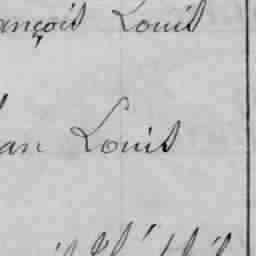 ançois Louis
an Louis